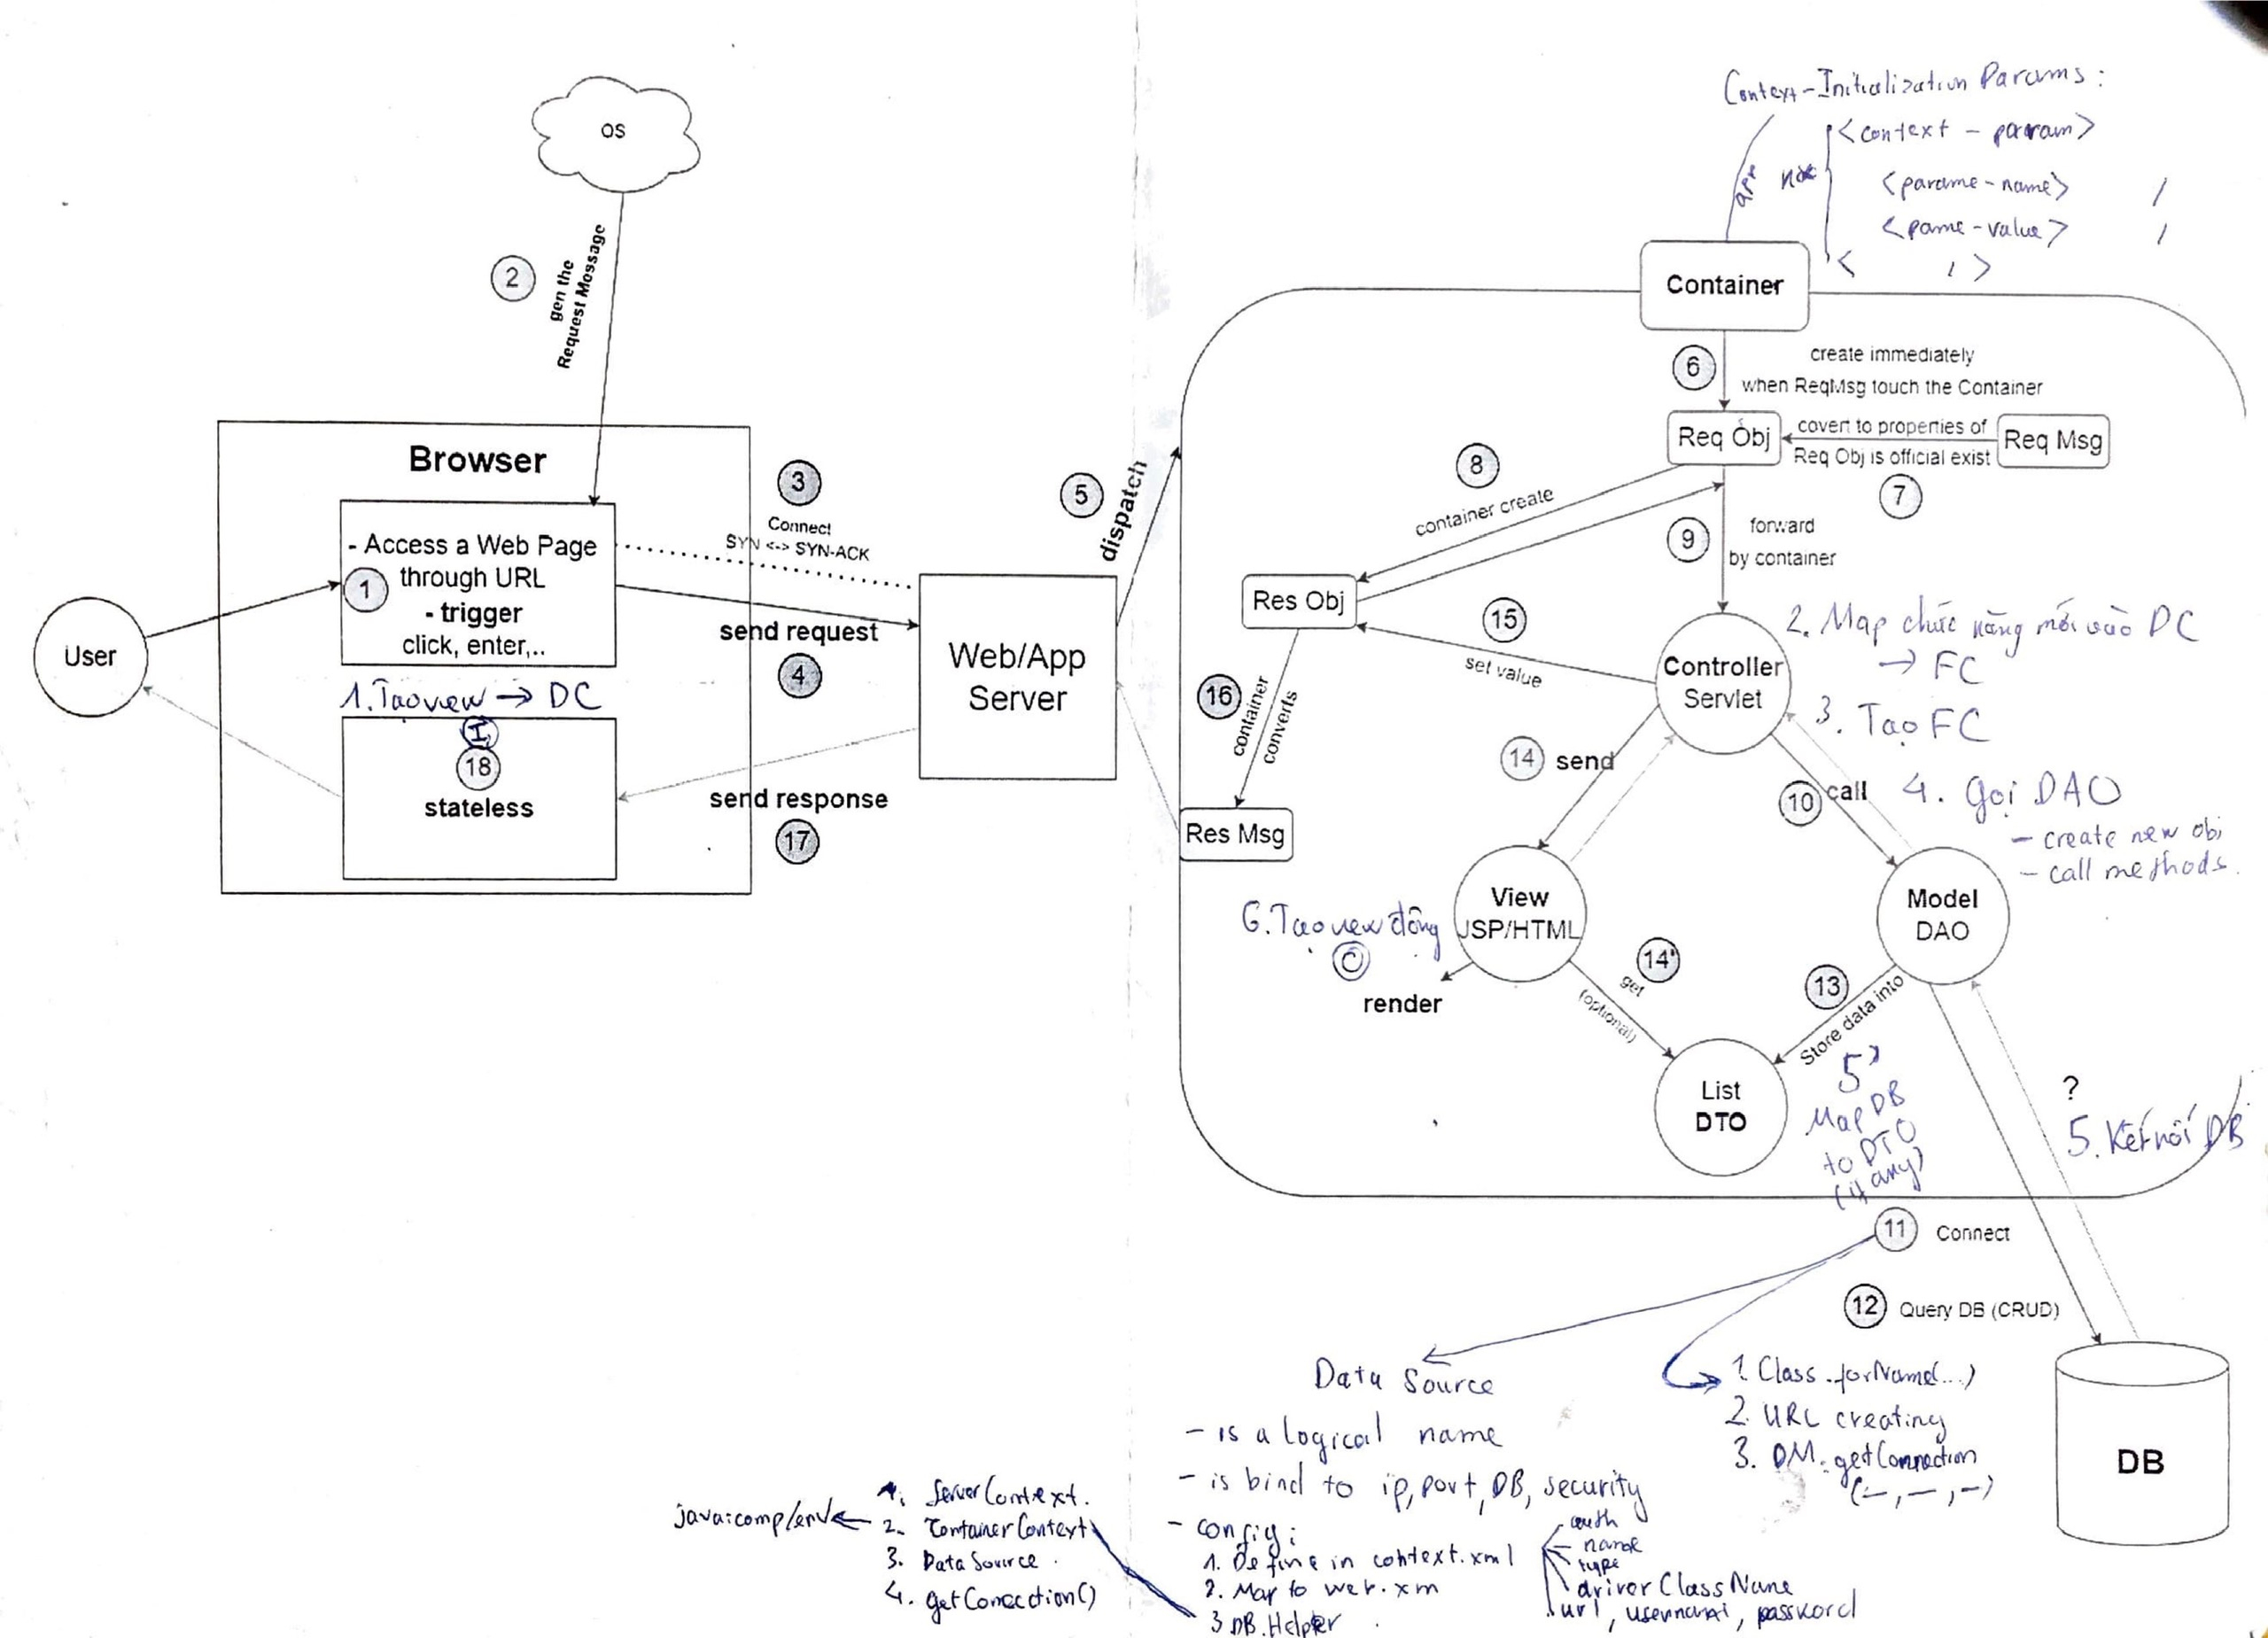 Context-Initialization Params:
<context-param>
app
<parame-name> /
<pame-value> /
< / >
OS
2
gen the
Request Message
Container
6
create immediately
when ReqMsg touch the Container
Req Obj
covert to properties of
Req Obj is official exist
Req Msg
7
Browser
- Access a Web Page
through URL
- trigger
click, enter,..
1
User
1. Tạo view → DC
I
18
stateless
3
Connect
SYN <-> SYN-ACK
send request
4
Web/App
Server
send response
17
5
dispatch
8
container create
9
forward
by container
Res Obj
15
set value
16
container
converts
Res Msg
Controller
Servlet
2. Map chức năng mới vào DC
→ FC
3. Tạo FC
14
send
10
call
4. gọi DAO
- create new obj
- call methods.
View
JSP/HTML
6. Tạo view động
C
render
14'
get
(optional)
Model
DAO
13
Store data into
List
DTO
5'
Map DB
to DTO
(if any)
?
5. Kết nối DB
11
Connect
12
Query DB (CRUD)
DB
1. Class.forName(...)
2. URL creating
3. DM.getConnection
(—, —, —)
Data Source
- is a logical name
- is bind to ip, port, DB, security
- config:
1. Define in context.xml
2. Map to web.xm
3 DB.Helper
auth
name
type
driverClassName
url, username, password
java:comp/env
1. ServerContext.
2. ContainerContext
3. DataSource.
4. getConecction()